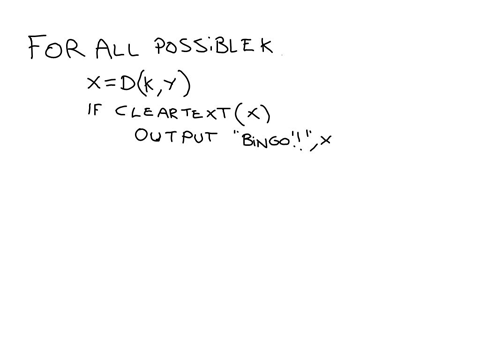 FOR ALL POSSIBLE K
X = D(K,Y)
IF CLEARTEXT(X)
OUTPUT "BINGO!!", X